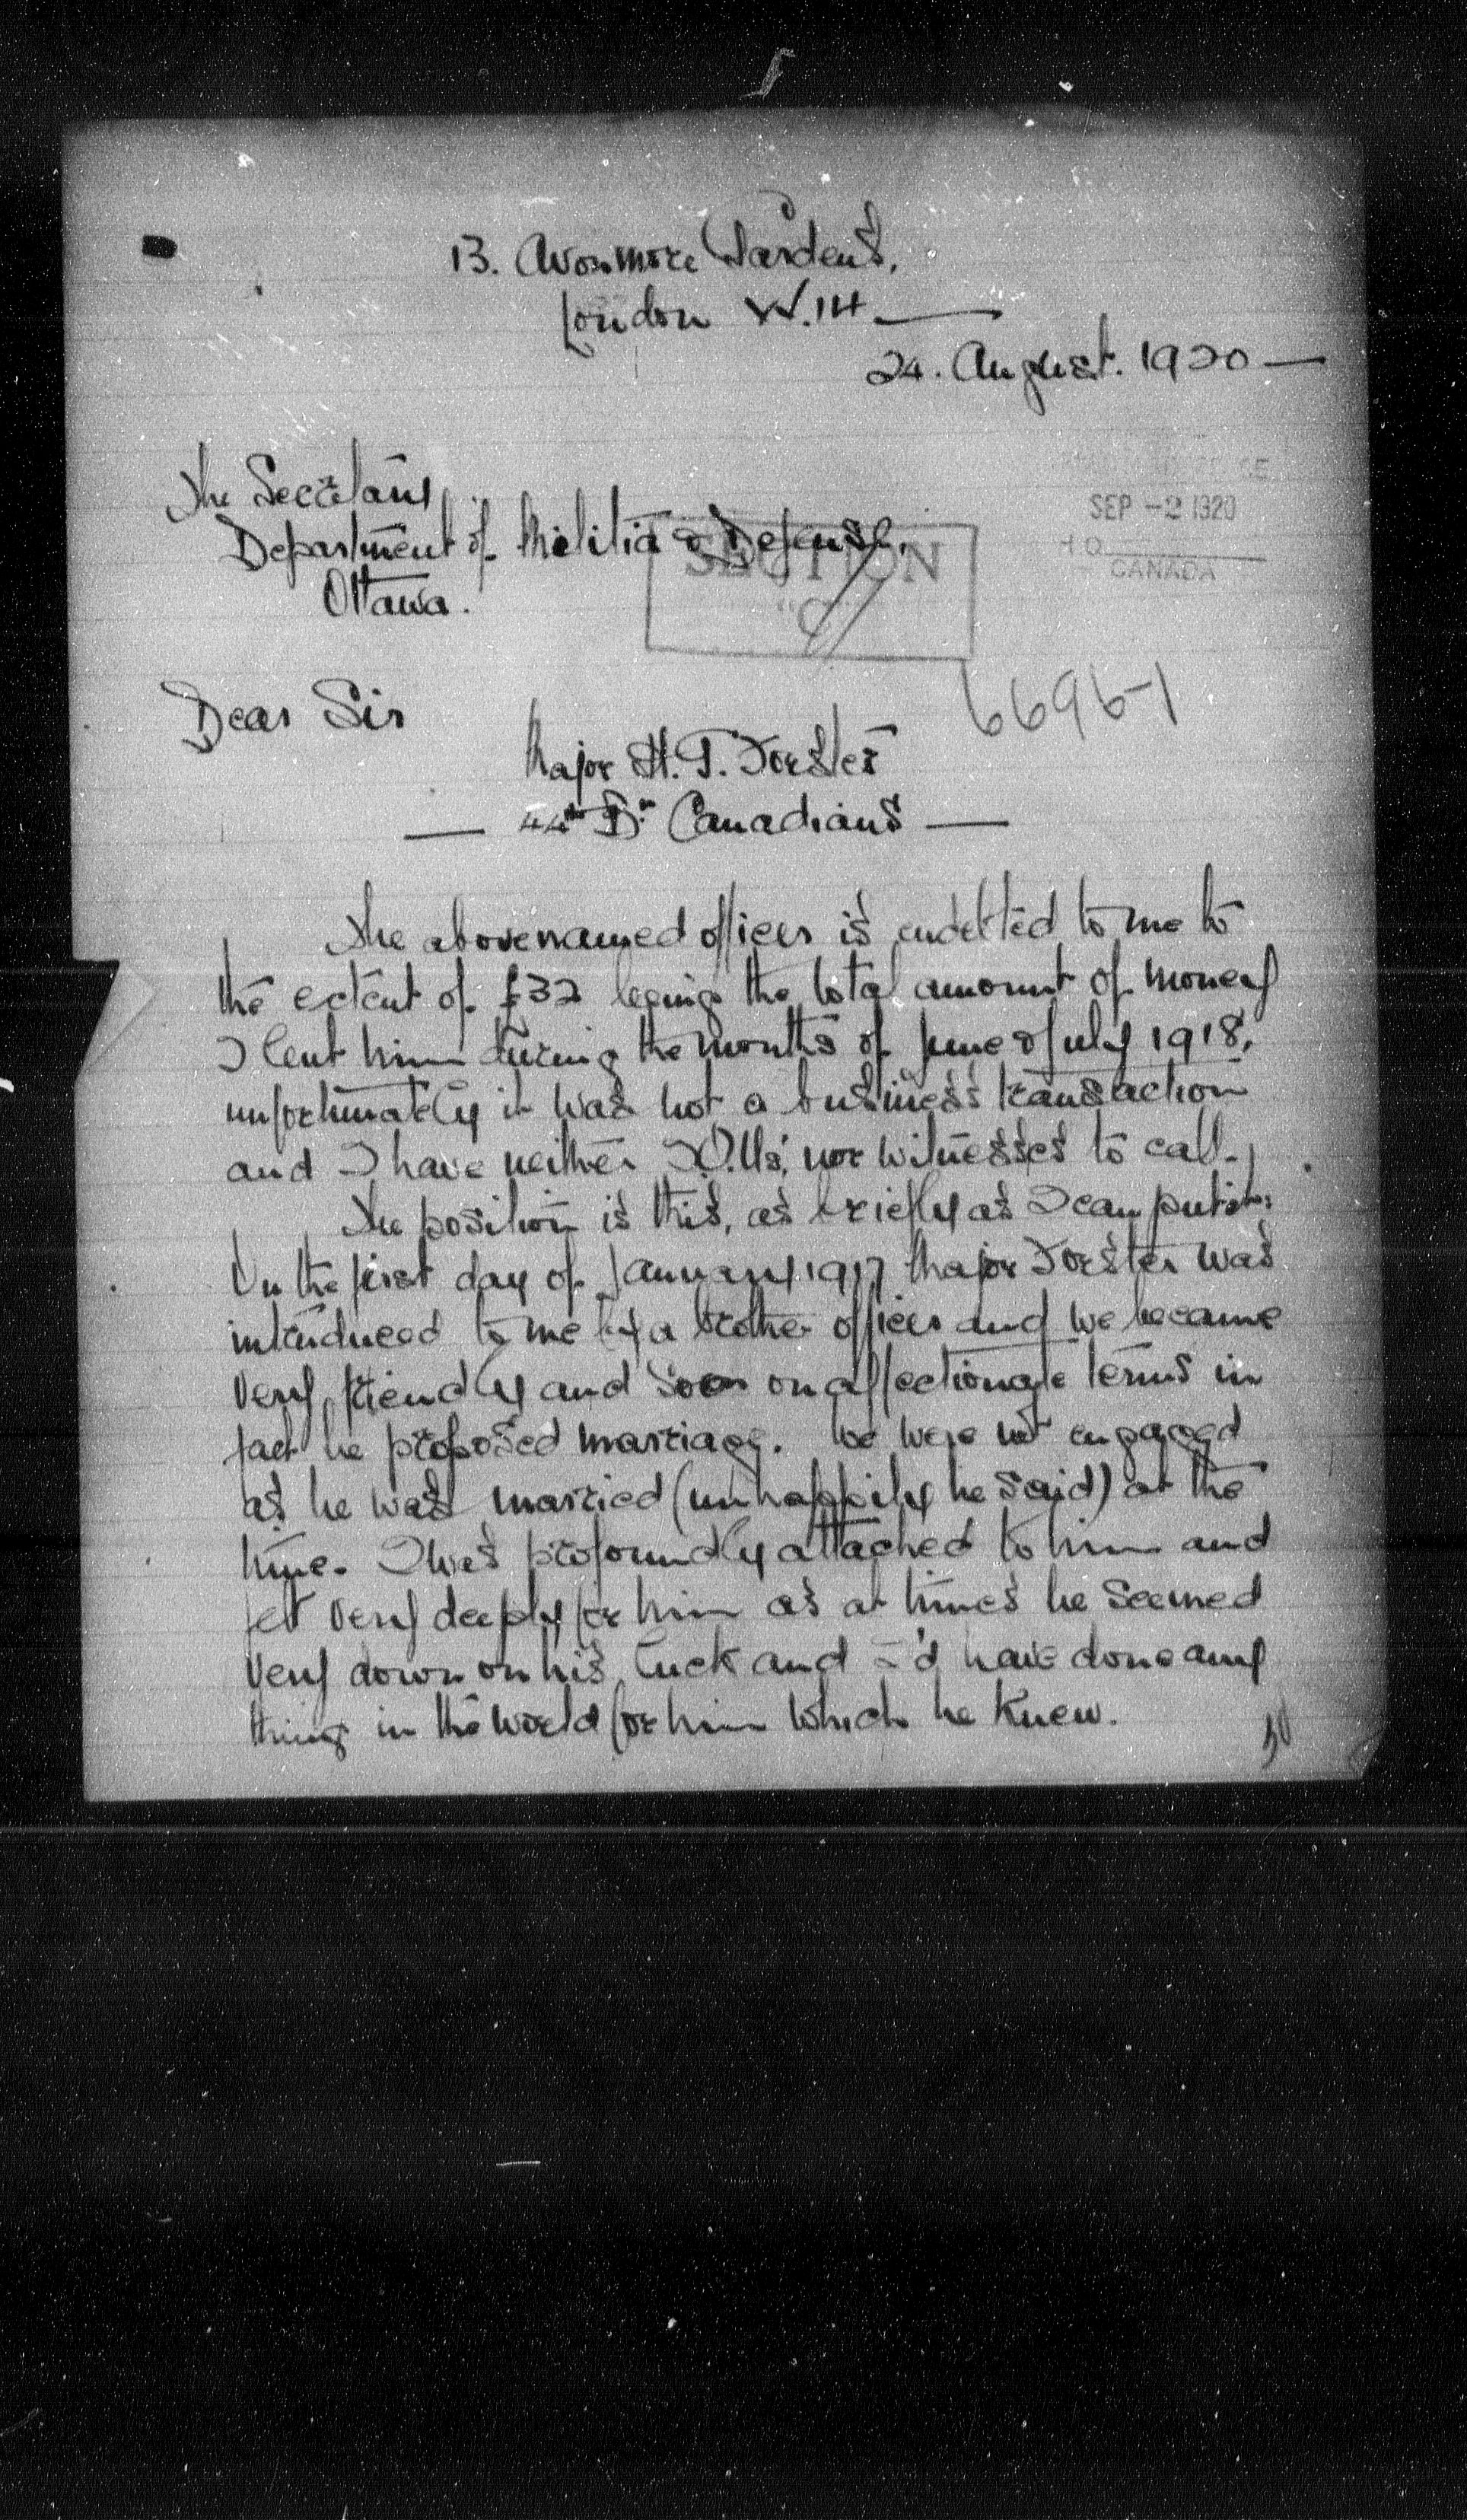 13. Avonmore Gardens,
London W.14
24. August. 1920
The Secretary
Department of Militia & Defense,
Ottawa.
SEP -2 1920
CANADA
SECTION
"C"
Dear Sir
6696-1
Major H. T. Forster
44th Bn Canadians
The abovenamed officer is indebted to me to
the extent of £32 being the total amount of money
I lent him during the months of June & July 1918,
unfortunately it was not a business transaction
and I have neither I.O.Us', nor witnesses to call.
The position is this, as briefly as I can put it:
On the first day of January 1917 Major Forster was
introduced to me by a brother officer and we became
very friendly and soon on affectionate terms in
fact he proposed marriage. We were not engaged
as he was married (unhappily he said) at the
time. I was profoundly attached to him and
felt very deeply for him as at times he seemed
very down on his luck and I'd have done any
thing in the world for him which he knew.